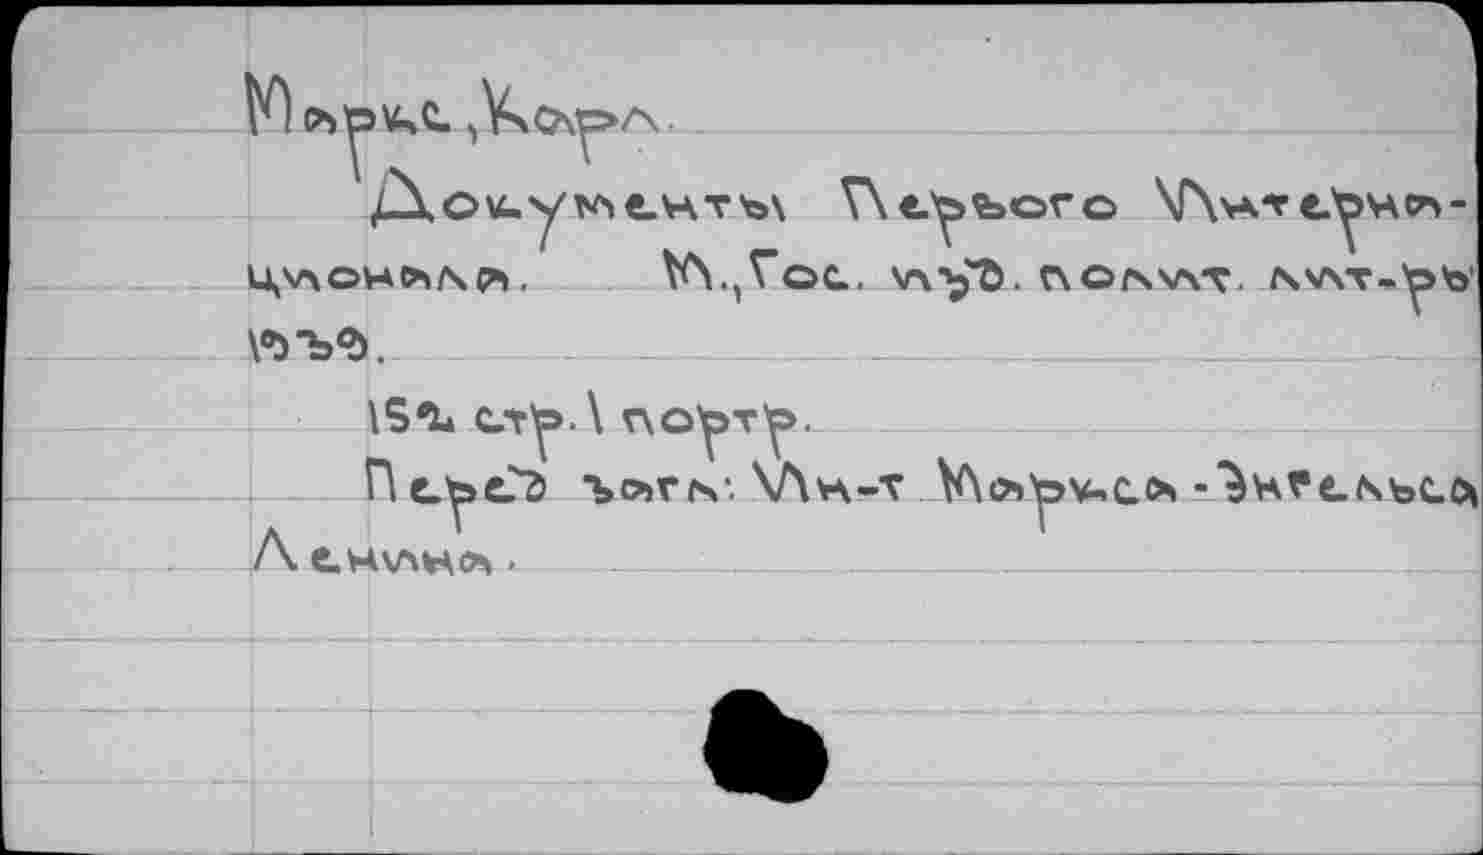 Маркс, Карл.
Документы Первого Интерна-
ционала. М., Гос. изд. полит. лит-ры
1939.
152 стр. \ портр.
Перед загл: Ин-т Маркса-Энгельса
Ленина.